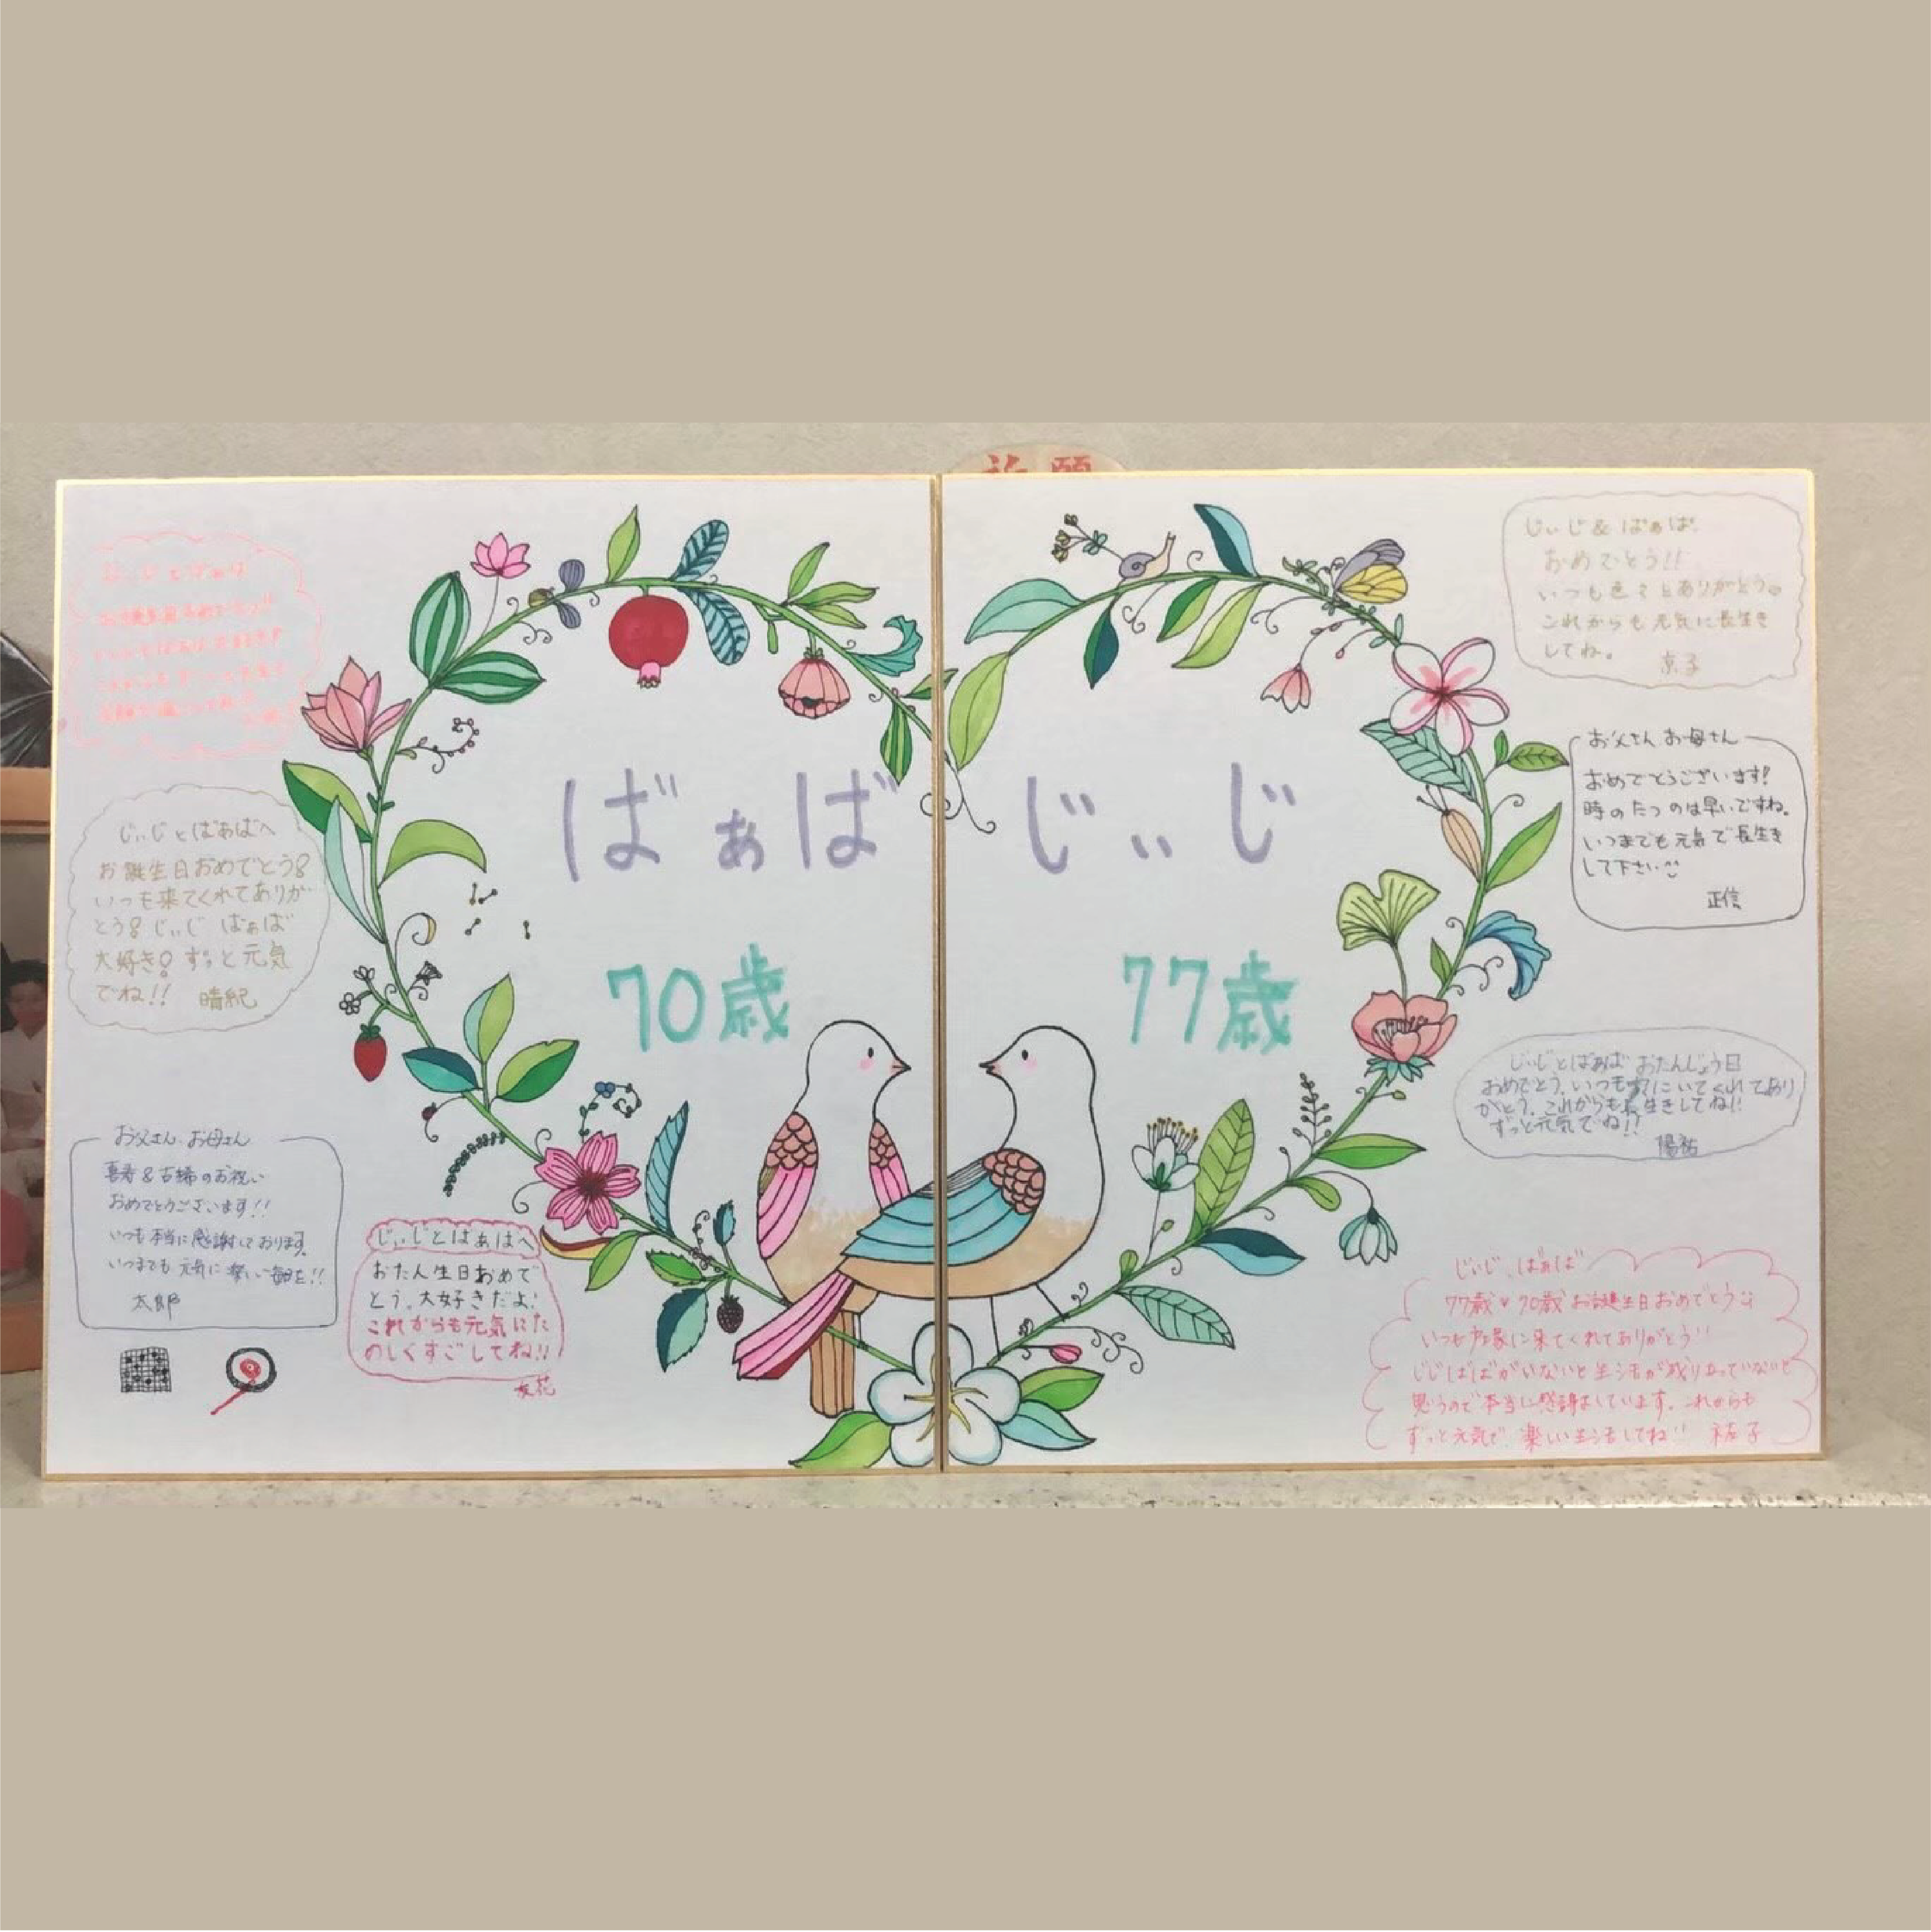 祈願
じぃじとばぁば
ばぁば
70歳
じぃじとばぁばへ
お誕生日おめでとう!
いつも来てくれてありが
とう! じぃじ ばぁば
大好き! ずっと元気
でね!! 晴紀
お父さん、お母さん
喜寿&古稀のお祝い
おめでとうございます!!
いつも本当に感謝しております。
いつまでも元気に楽しい毎日を!!
太郎
じぃじとばぁばへ
おたん生日おめで
とう。大好きだよ!
これからも元気にた
のしくすごしてね!!
友花
じぃじ
77歳
じぃじ&ばぁば、
おめでとう!!
いつも色々ありがとう♡
これからも元気に長生き
してね。
京子
お父さん お母さん
おめでとうございます!
時のたつのは早いですね。
いつまでも元気で長生き
して下さい
正信
じぃじとばぁば おたんじょう日
おめでとう。いつも家にいてくれてあり
がとう。これからも長生きしてね!!
ずっと元気でね!!
陽祐
じぃじ、ばぁば
77歳♥70歳お誕生日おめでとう
いつも我家に来てくれてありがとう!!
じじばばがいないと生活が成り立っていないと
思うので本当に感謝しています。これからも
ずっと元気で、楽しい生活してね!!